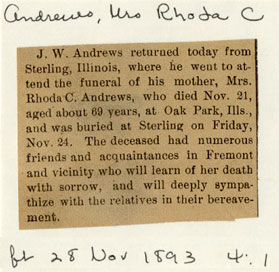 Andrews, Mrs Rhoda C
J. W. Andrews returned today from
Sterling, Illinois, where he went to at-
tend the funeral of his mother, Mrs.
Rhoda C. Andrews, who died Nov. 21,
aged about 69 years, at Oak Park, Ills.,
and was buried at Sterling on Friday,
Nov. 24. The deceased had numerous
friends and acquaintances in Fremont
and vicinity who will learn of her death
with sorrow, and will deeply sympa-
thize with the relatives in their bereave-
ment.
ft 28 Nov 1893 4:1